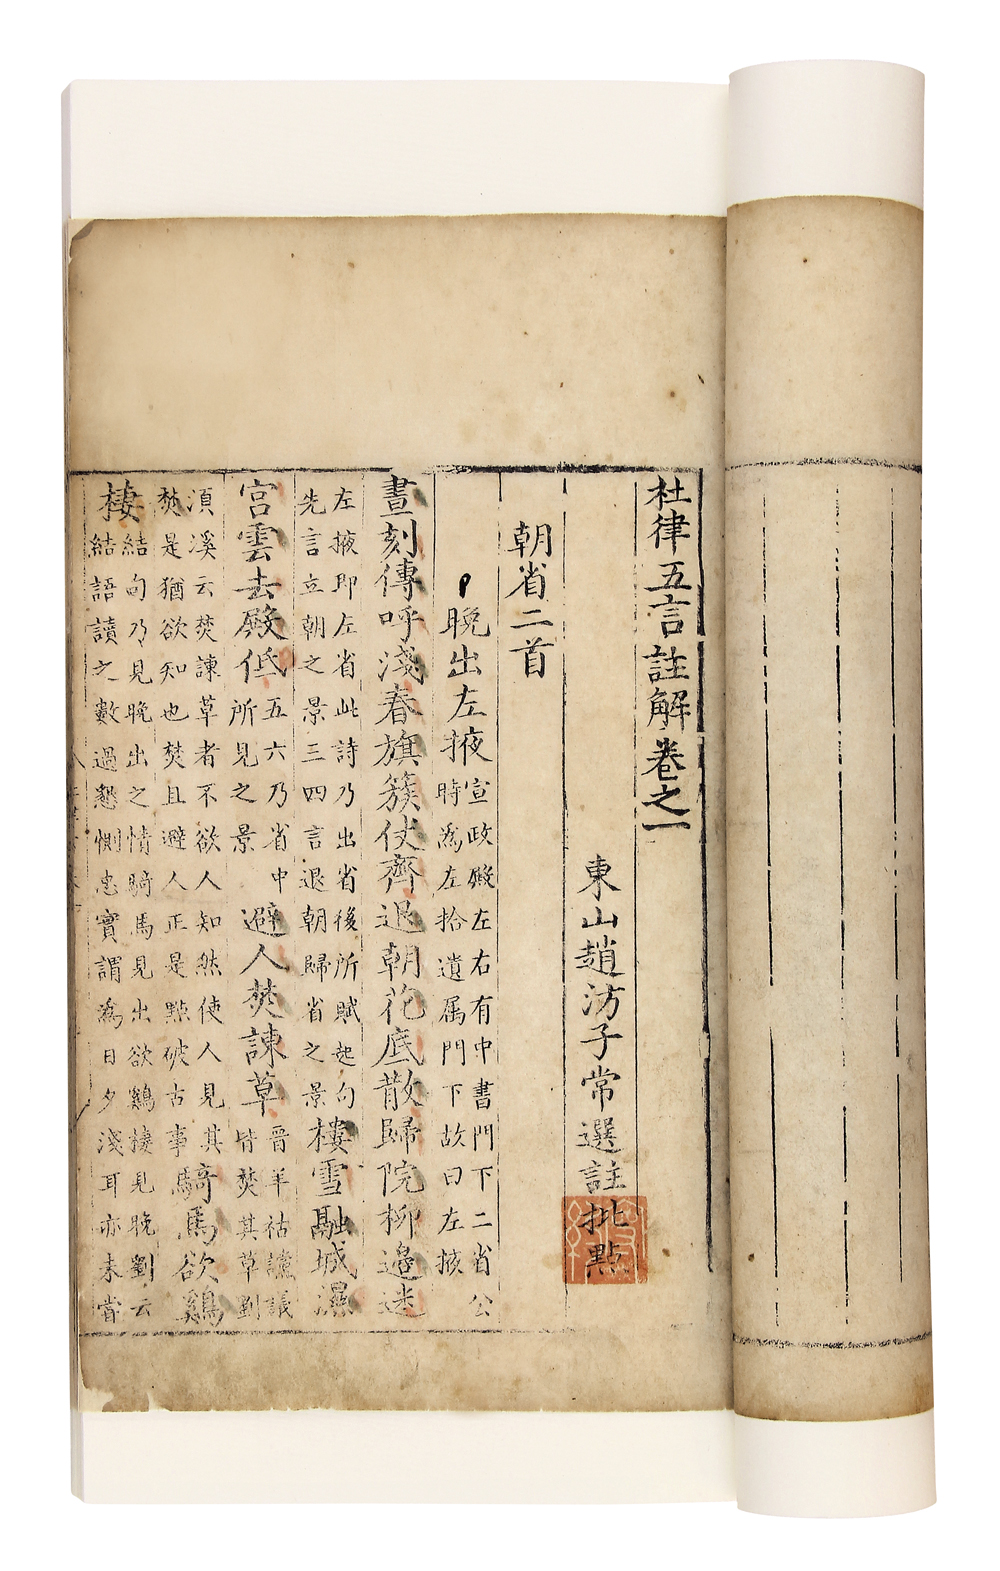 杜律五言註解卷之一
東山趙汸子常選註批點
朝省二首
晚出左掖
宣政殿左右有中書門下二省公
時為左拾遺属門下故曰左掖
晝刻傳呼淺春旗簇仗齊退朝花底散歸院柳邉迷
左掖即左省此詩乃出省後所賦起句
先言立朝之景三四言退朝歸省之景
樓雪融城濕
宮雲去殿低
五六乃省中
所見之景
避人焚諫草
晉羊祜讜議
皆焚其草劉
湏溪云焚諫草者不欲人知然使人見其
焚是猶欲知也焚且避人正是點破古事
騎馬欲鷄
棲
結句乃見晚出之情騎馬見出欲鷄棲見晚劉云
結語讀之數過懇惻忠實謂為日夕淺耳亦未甞